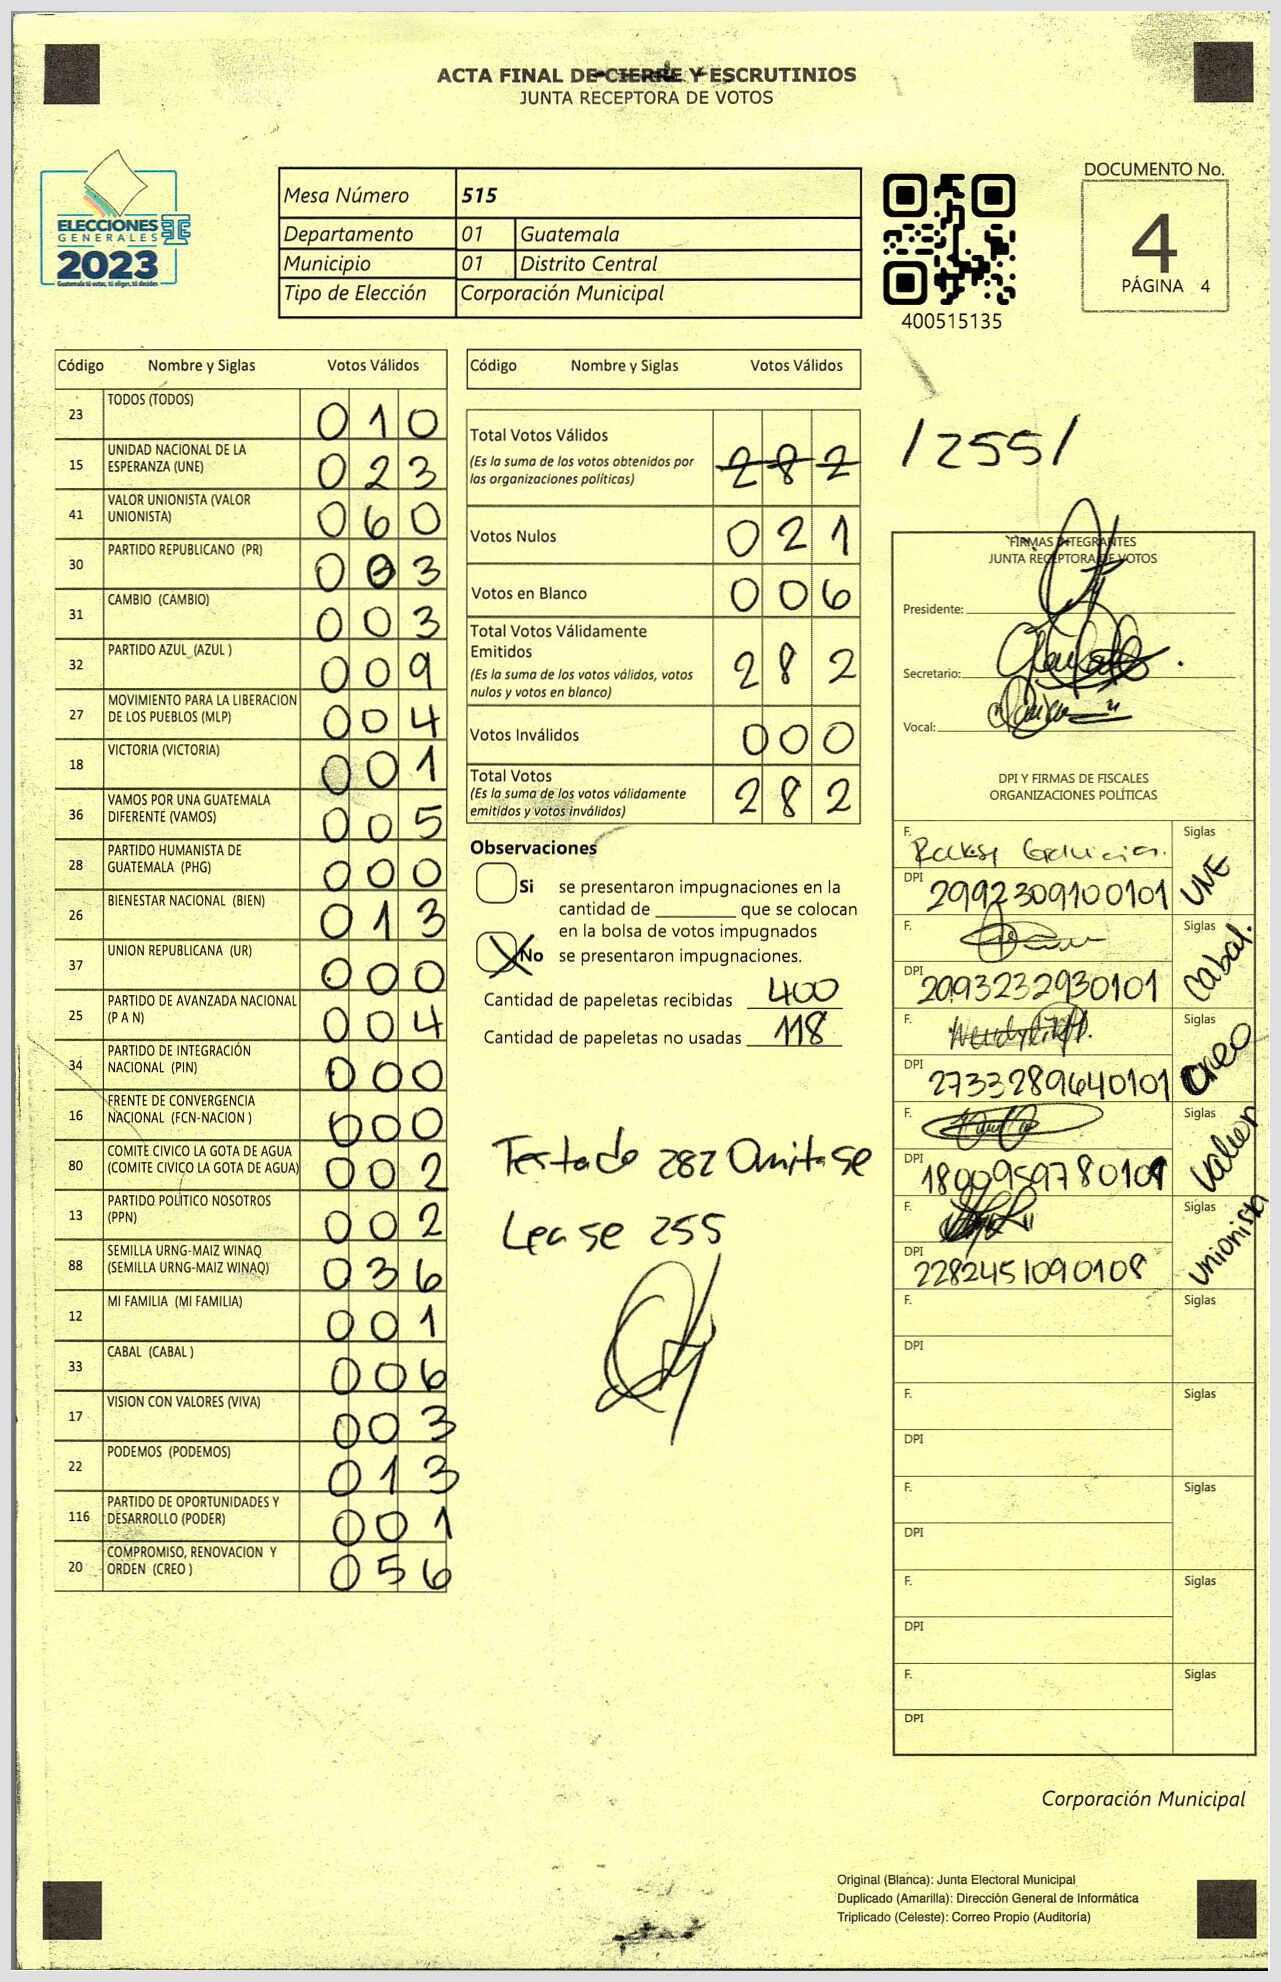 ACTA FINAL DE CIERRE Y ESCRUTINIOS
JUNTA RECEPTORA DE VOTOS
ELECCIONES
GENERALES
2023
Guatemala tú votas, tú eliges, tú decides
Mesa Número 515
Departamento 01 Guatemala
Municipio 01 Distrito Central
Tipo de Elección Corporación Municipal
400515135
DOCUMENTO No.
4
PÁGINA 4
Código Nombre y Siglas Votos Válidos
23 TODOS (TODOS) 010
15 UNIDAD NACIONAL DE LA
ESPERANZA (UNE) 023
41 VALOR UNIONISTA (VALOR
UNIONISTA) 060
30 PARTIDO REPUBLICANO (PR) 003
31 CAMBIO (CAMBIO) 003
32 PARTIDO AZUL (AZUL ) 009
27 MOVIMIENTO PARA LA LIBERACION
DE LOS PUEBLOS (MLP) 004
18 VICTORIA (VICTORIA) 001
36 VAMOS POR UNA GUATEMALA
DIFERENTE (VAMOS) 005
28 PARTIDO HUMANISTA DE
GUATEMALA (PHG) 000
26 BIENESTAR NACIONAL (BIEN) 013
37 UNION REPUBLICANA (UR) 000
25 PARTIDO DE AVANZADA NACIONAL
(P A N) 004
34 PARTIDO DE INTEGRACIÓN
NACIONAL (PIN) 000
16 FRENTE DE CONVERGENCIA
NACIONAL (FCN-NACION ) 000
80 COMITE CIVICO LA GOTA DE AGUA
(COMITE CIVICO LA GOTA DE AGUA) 002
13 PARTIDO POLITICO NOSOTROS
(PPN) 002
88 SEMILLA URNG-MAIZ WINAQ
(SEMILLA URNG-MAIZ WINAQ) 036
12 MI FAMILIA (MI FAMILIA) 001
33 CABAL (CABAL ) 006
17 VISION CON VALORES (VIVA) 003
22 PODEMOS (PODEMOS) 013
116 PARTIDO DE OPORTUNIDADES Y
DESARROLLO (PODER) 001
20 COMPROMISO, RENOVACION Y
ORDEN (CREO ) 056
Código Nombre y Siglas Votos Válidos
Total Votos Válidos 282
(Es la suma de los votos obtenidos por
las organizaciones políticas)
/255/
Votos Nulos 021
Votos en Blanco 006
Total Votos Válidamente
Emitidos 282
(Es la suma de los votos válidos, votos
nulos y votos en blanco)
Votos Inválidos 000
Total Votos 282
(Es la suma de los votos válidamente
emitidos y votos inválidos)
Observaciones
Si se presentaron impugnaciones en la
cantidad de ________ que se colocan
en la bolsa de votos impugnados
No se presentaron impugnaciones.
Cantidad de papeletas recibidas 400
Cantidad de papeletas no usadas 118
Testado 282 Omitase
Lease 255
FIRMAS INTEGRANTES
JUNTA RECEPTORA DE VOTOS
Presidente:
Secretario:
Vocal:
DPI Y FIRMAS DE FISCALES
ORGANIZACIONES POLÍTICAS
F. Siglas
DPI 2992309100101 UNE
F. Siglas
DPI 2093232930101 Cabal.
F. Siglas
DPI 2733289640101 Creo
F. Siglas
DPI 1800959780101 Valor
F. Siglas
DPI 2282451090108 Unionista
F. Siglas
DPI
F. Siglas
DPI
F. Siglas
DPI
F. Siglas
DPI
F. Siglas
DPI
Corporación Municipal
Original (Blanca): Junta Electoral Municipal
Duplicado (Amarilla): Dirección General de Informática
Triplicado (Celeste): Correo Propio (Auditoría)